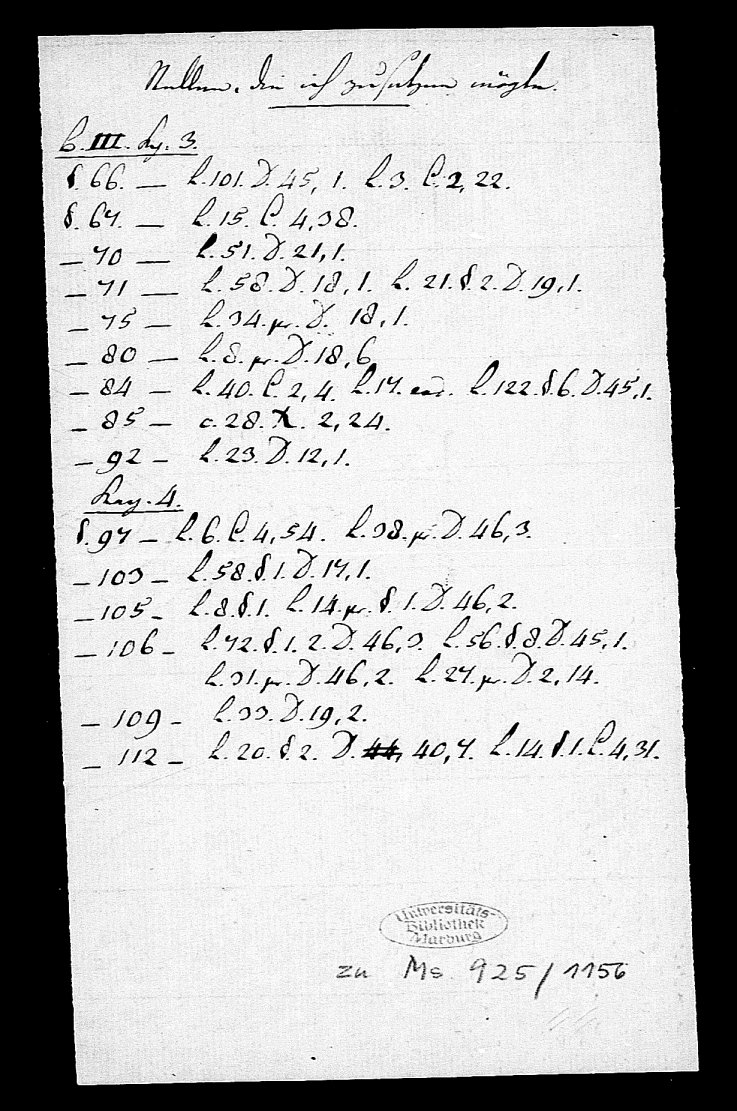 Stellen, die ich zusetzen möchte.
B. III. Kap. 3.
§. 66. — L. 101. D. 45, 1. L. 3. C. 2, 22.
§. 67. — L. 15. C. 4, 38.
— 70 — L. 51. D. 21, 1.
— 71 — L. 58. D. 18, 1. L. 21. §. 2. D. 19, 1.
— 75 — L. 34. pr. D. 18, 1.
— 80 — L. 8. pr. D. 18, 6.
— 84 — L. 40. C. 2, 4. L. 17. eod. L. 122. §. 6. D. 45, 1.
— 85 — c. 28. X. 2, 24.
— 92 — L. 23. D. 12, 1.
Kap. 4.
§. 97 — L. 6. C. 4, 54. L. 38. pr. D. 46, 3.
— 103 — L. 58. §. 1. D. 17, 1.
— 105 — L. 8. §. 1. L. 14. pr. §. 1. D. 46, 2.
— 106 — L. 72. §. 1. 2. D. 46, 3. L. 56. §. 8. D. 45, 1.
L. 31. pr. D. 46, 2. L. 27. pr. D. 2, 14.
— 109 — L. 33. D. 19, 2.
— 112 — L. 20. §. 2. D. 44, 40, 7. L. 14. §. 1. C. 4, 31.
Universitäts-
Bibliothek
Marburg
zu Ms. 925/1156